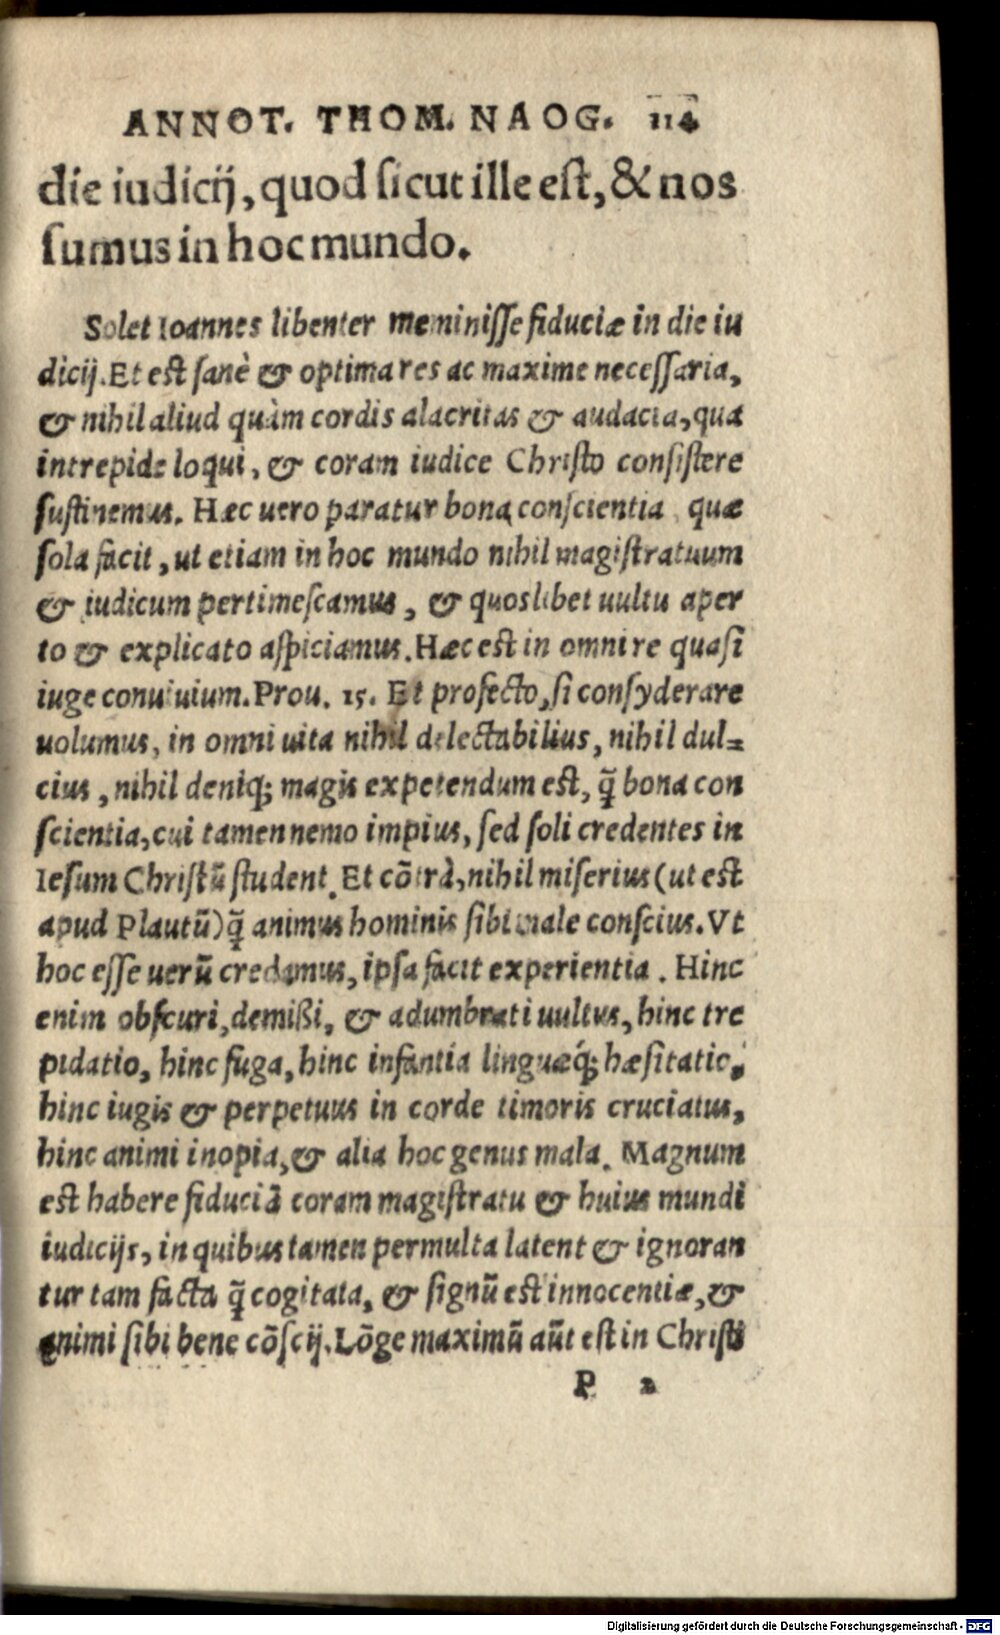 ANNOT. THOM. NAOG. 114
die iudicij, quod sicut ille est, & nos
sumus in hoc mundo.
Solet Ioannes libenter meminisse fiduciæ in die iu
dicij. Et est sanè & optima res ac maxime necessaria,
& nihil aliud quàm cordis alacritas & audacia, qua
intrepide loqui, & coram iudice Christo consistere
sustinemus. Hæc uero paratur bona conscientia, quæ
sola facit, ut etiam in hoc mundo nihil magistratuum
& iudicum pertimescamus, & quoslibet uultu aper
to & explicato aspiciamus. Hæc est in omni re quasi
iuge conuiuium. Prou. 15. Et profecto, si consyderare
uolumus, in omni uita nihil delectabilius, nihil dul=
cius, nihil deniq; magis expetendum est, q̃ bona con
scientia, cui tamen nemo impius, sed soli credentes in
Iesum Christũ student. Et cõtrà, nihil miserius (ut est
apud Plautũ) q̃ animus hominis sibi male conscius. Vt
hoc esse uerũ credamus, ipsa facit experientia. Hinc
enim obscuri, demißi, & adumbrati uultus, hinc tre
pidatio, hinc fuga, hinc infantia linguæq́; hæsitatio,
hinc iugis & perpetuus in corde timoris cruciatus,
hinc animi inopia, & alia hoc genus mala. Magnum
est habere fiduciã coram magistratu & huius mundi
iudicijs, in quibus tamen permulta latent & ignoran
tur tam facta q̃ cogitata, & signũ est innocentiæ, &
animi sibi bene cõscij. Lõge maximũ aũt est in Christi
P 2
Digitalisierung gefördert durch die Deutsche Forschungsgemeinschaft - DFG